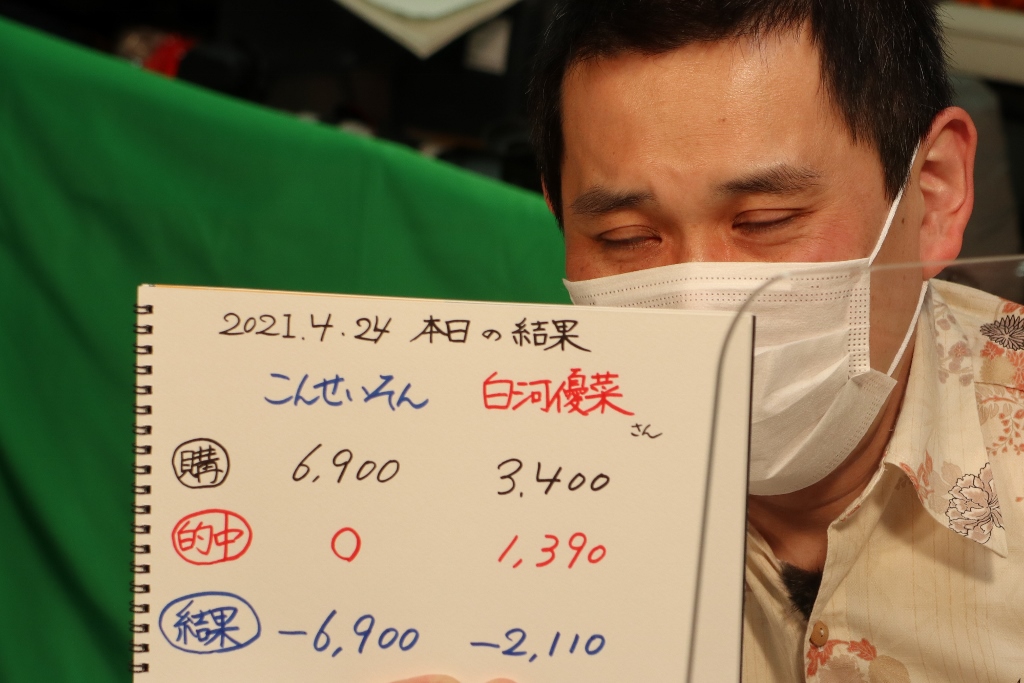 2021.4.24 本日の結果
こんせいそん 白河優菜
さん
購 6,900 3,400
的中 0 1,390
結果 -6,900 -2,110